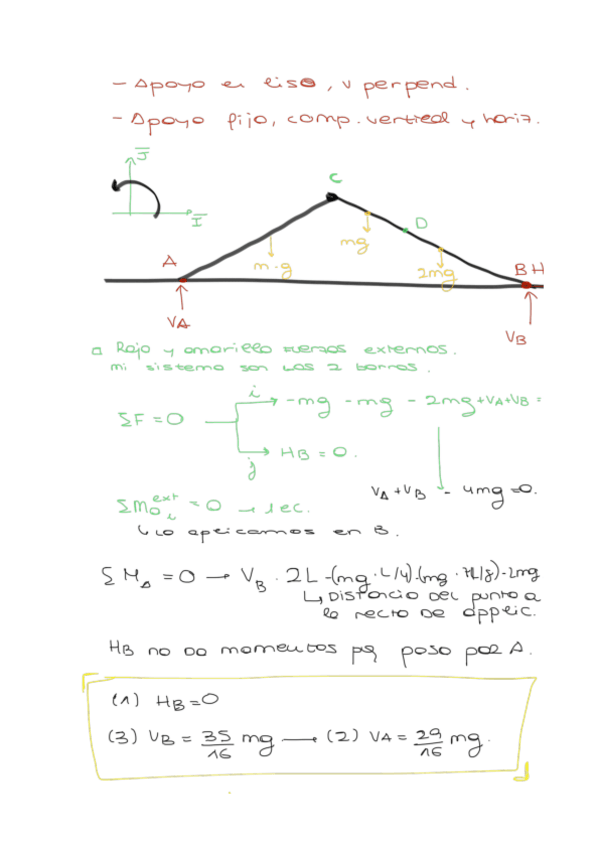 - Apoyo en liso, v perpend.
- Apoyo fijo, comp. vertical y horiz.
J
I
C
D
A
mg
m·g
2mg
B H
VA
VB
a Rojo y amarillo fuerzas externas.
mi sistema son las 2 barras.
i → -mg - mg - 2mg + VA + VB =
ΣF = 0
j → HB = 0.
VA + VB - 4mg = 0.
ΣM_Oi^ext = 0 → 1 ec.
↳ lo aplicamos en B.
ΣMA = 0 → VB · 2L - (mg · L/4) · (mg · 7L/8) - 2mg
↳ Distancia del punto a
la recta de applic.
HB no da momentos pq pasa por A.
(1) HB = 0
(3) VB = 35/16 mg → (2) VA = 29/16 mg.